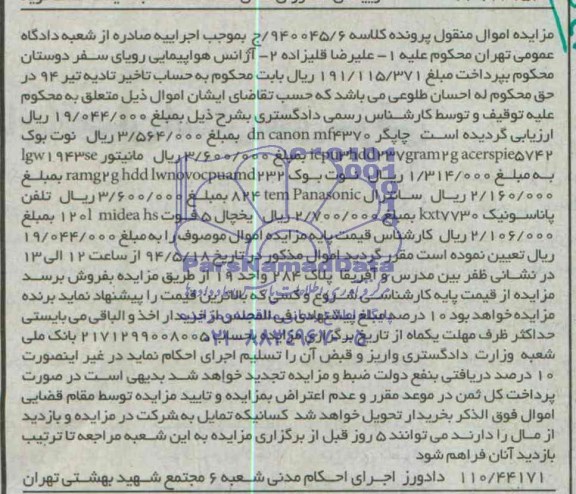 مزایده اموال منقول پرونده کلاسه ۹۴۰۰۴۵/۶/ج بموجب اجراییه صادره از شعبه دادگاه
عمومی تهران محکوم علیه ۱- علیرضا قلیزاده ۲- آژانس هواپیمایی رویای سفر دوستان
محکوم بپرداخت مبلغ ۱۹۱/۱۱۵/۳۷۱ ریال بابت محکوم به حساب تاخیر تادیه تیر ۹۴ در
حق محکوم له احسان طلوعی می باشد که حسب تقاضای ایشان اموال ذیل متعلق به محکوم
علیه توقیف و توسط کارشناس رسمی دادگستری بشرح ذیل بمبلغ ۱۹/۰۴۴/۰۰۰ ریال
ارزیابی گردیده است چاپگر dn canon mf۴۳۷۰ بمبلغ ۳/۵۶۴/۰۰۰ ریال نوت بوک
acerspie۵۷۴۲ بمبلغ ۳/۶۰۰/۰۰۰ ریال مانیتور lgw۱۹۴۳se
به مبلغ ۱/۳۱۴/۰۰۰ ریال نوت بوک ramg۲g hdd lwnovocpuamd۲۳۲ بمبلغ
۲/۱۶۰/۰۰۰ ریال سانترال tem Panasonic ۸۲۴ بمبلغ ۳/۶۰۰/۰۰۰ ریال تلفن
پاناسونیک kxt۷۷۳۰ بمبلغ ۲/۷۰۰/۰۰۰ ریال یخچال ۵ فوت ۱۲۰l midea hs بمبلغ
۲/۱۰۶/۰۰۰ ریال کارشناس قیمت پایه مزایده اموال موصوف را به مبلغ ۱۹/۰۴۴/۰۰۰
ریال تعیین نموده است مقرر گردید اموال مذکور در تاریخ ۹۴/۵/۱۸ از ساعت ۱۲ الی ۱۳
در نشانی ظفر بین مدرس و آفریقا پلاک ۲۸۴ واحد ۱۹ از طریق مزایده بفروش برسد
مزایده از قیمت پایه کارشناسی شروع و کسی که بالاترین قیمت را پیشنهاد نماید برنده
مزایده خواهد بود ۱۰ درصد مبلغ پیشنهادی فی المجلس از خریدار اخذ و الباقی می بایستی
حداکثر ظرف مهلت یکماه از تاریخ برگزاری مزایده به حساب ۲۱۷۱۲۹۹۰۰۸۰۰۵ بانک ملی
شعبه وزارت دادگستری واریز و قبض آن را تسلیم اجرای احکام نماید در غیر اینصورت
۱۰ درصد دریافتی بنفع دولت ضبط و مزایده تجدید خواهد شد بدیهی است در صورت
پرداخت کل ثمن در موعد مقرر و عدم اعتراض بمزایده و تایید مزایده توسط مقام قضایی
اموال فوق الذکر بخریدار تحویل خواهد شد کسانیکه تمایل به شرکت در مزایده و بازدید
از مال را دارند می توانند ۵ روز قبل از برگزاری مزایده به این شعبه مراجعه تا ترتیب
بازدید آنان فراهم شود
۱۱۰/۴۴۱۷۱ دادورز اجرای احکام مدنی شعبه ۶ مجتمع شهید بهشتی تهران
ParsNamadData
۰۲۱-۸۸۳۴۹۶۷۰